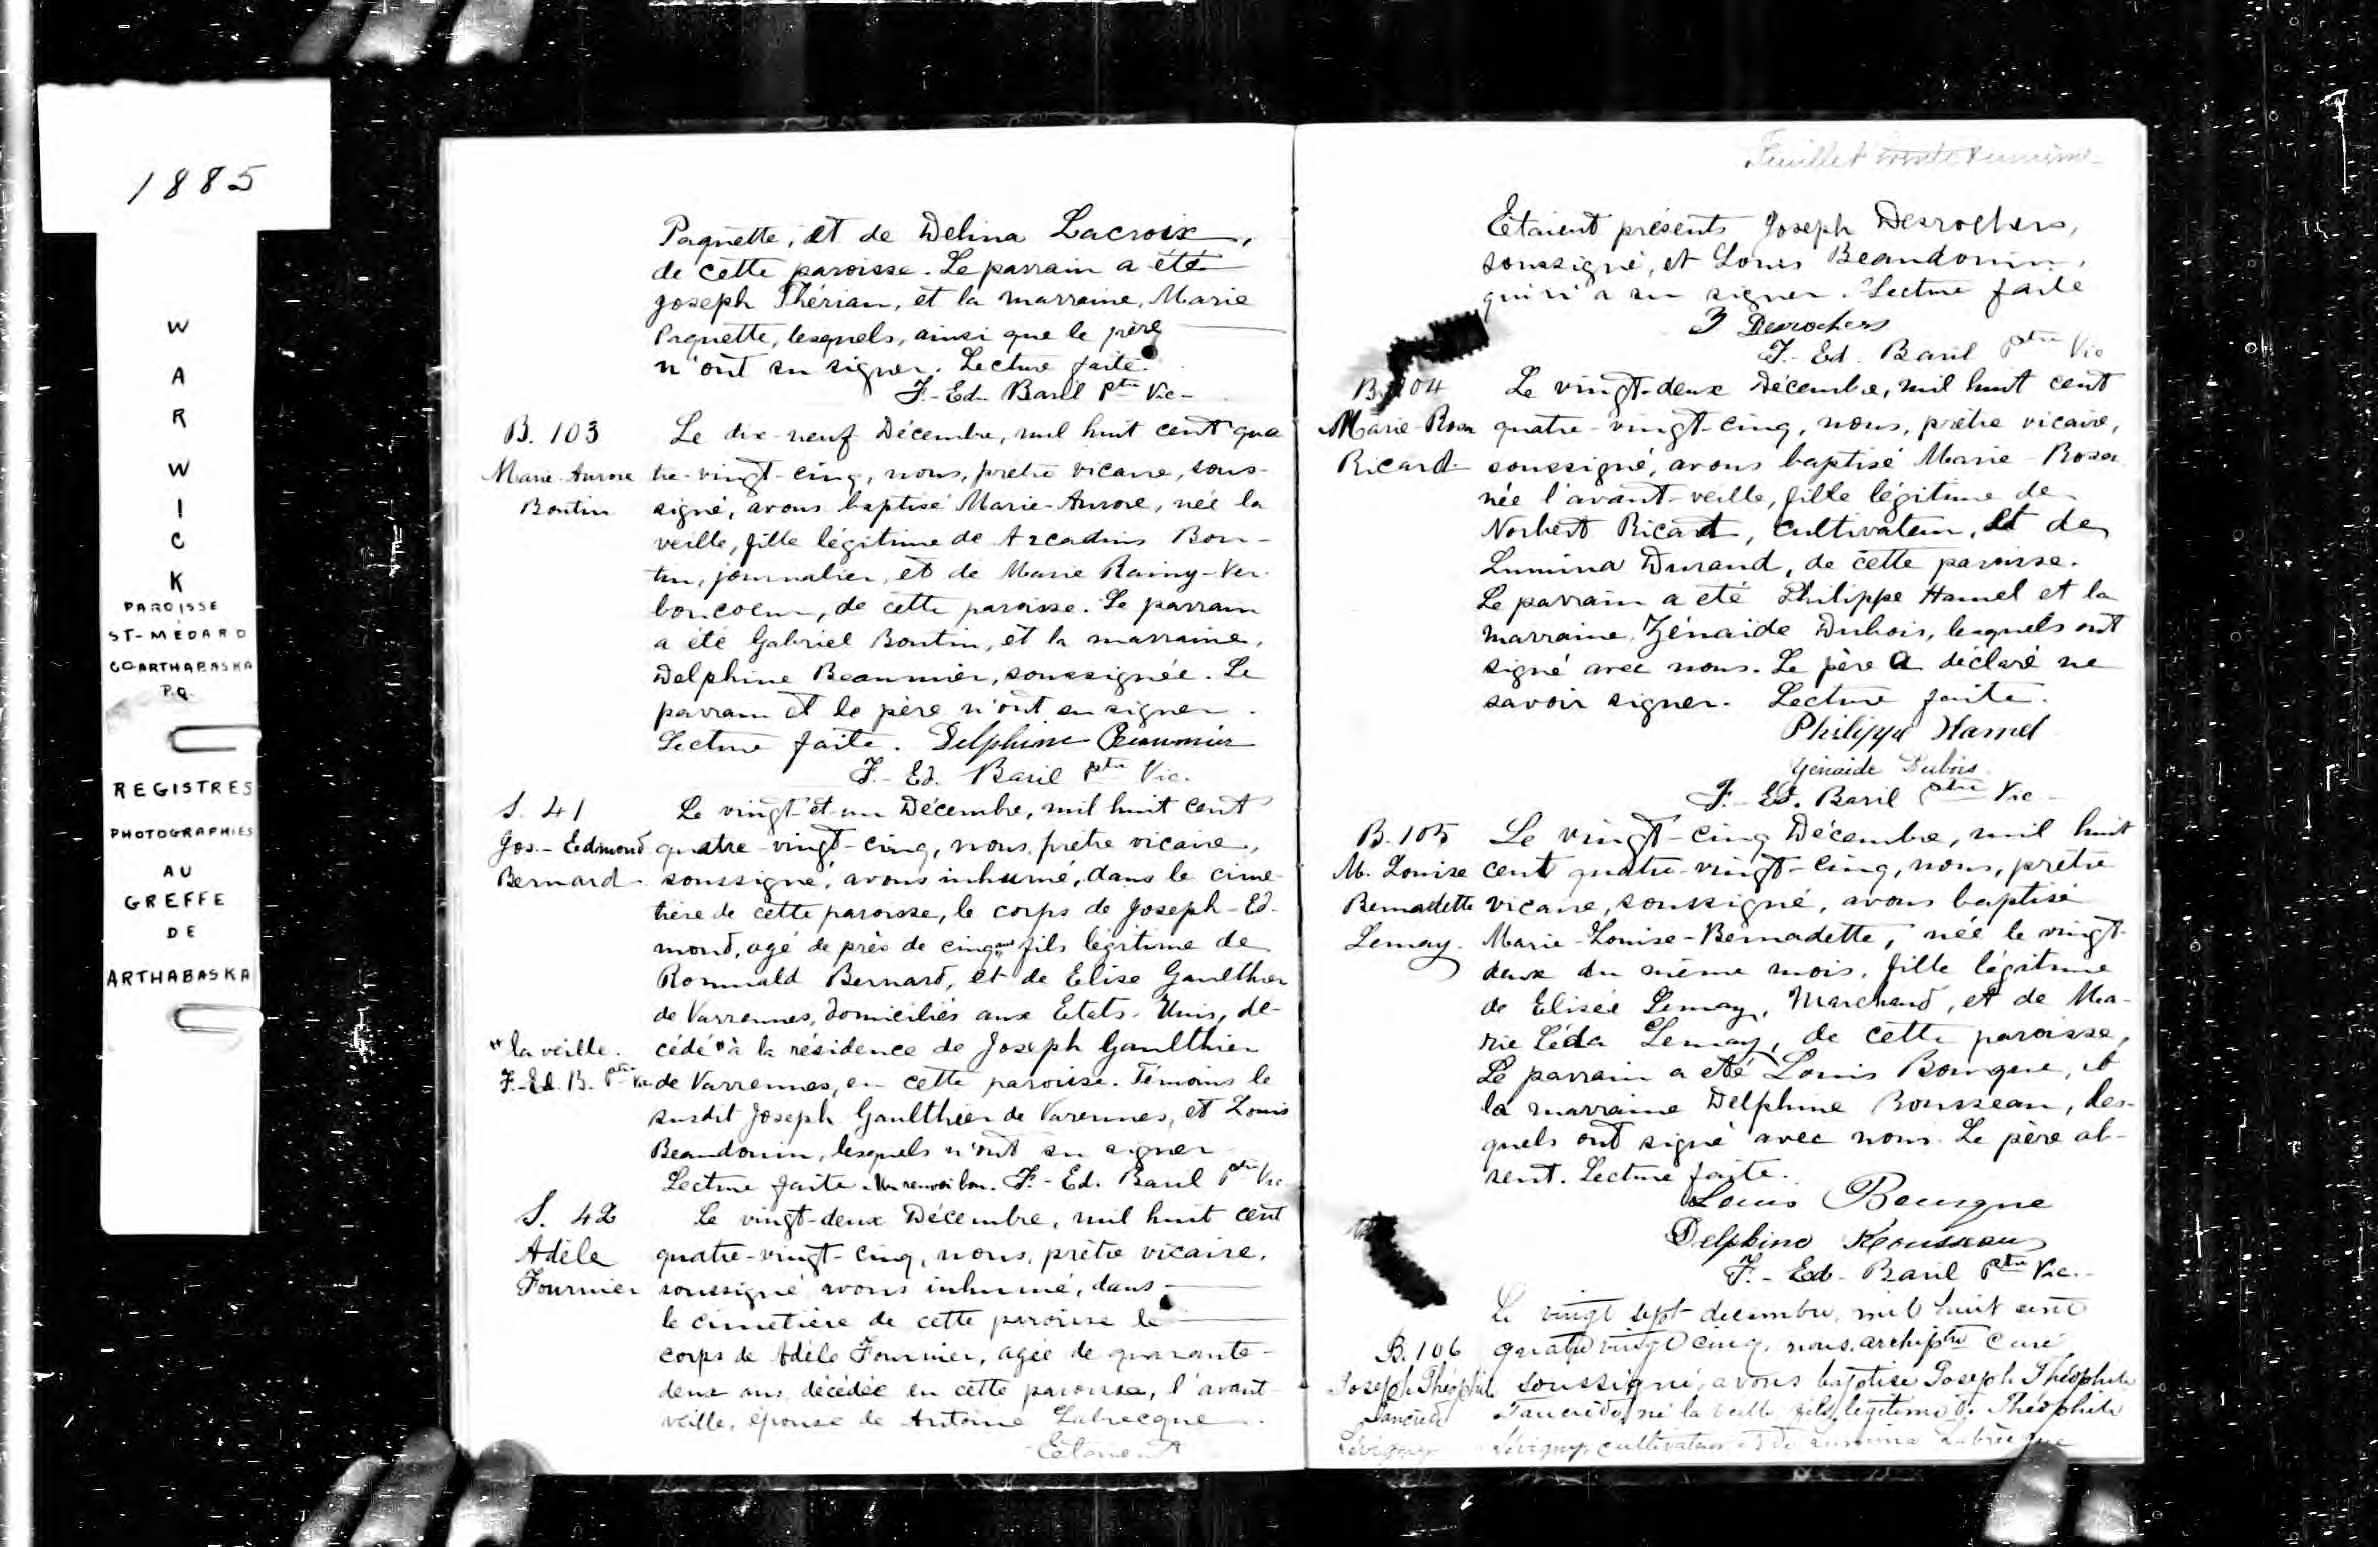 1885
W
A
R
W
I
C
K
PAROISSE
ST-MÉDARD
CO ARTHABASKA
P.Q.
REGISTRES
PHOTOGRAPHIES
AU
GREFFE
DE
ARTHABASKA
Paquette, et de Delina Lacroix,
de cette paroisse. Le parrain a été
Joseph Thérian, et la marraine, Marie
Paquette, lesquels, ainsi que le père
n'ont su signer. Lecture faite.
F.-Ed. Baril Ptre Vic-
B. 103
Marie-Aurore
Boutin
Le dix-neuf Décembre, mil huit cent qua
tre-vingt-cinq, nous, prêtre vicaire, sous-
signé, avons baptisé Marie-Aurore, née la
veille, fille légitime de Arcadius Bou-
tin, journalier, et de Marie Rainy-Ver-
boncoeur, de cette paroisse. Le parrain
a été Gabriel Boutin, et la marraine,
Delphine Beaumier, soussignée. Le
parrain et le père n'ont su signer.
Lecture faite. Delphine Beaumier
F.-Ed. Baril Ptre Vic.
S. 41
Jos.-Edmond
Bernard
Le vingt-et-un Décembre, mil huit cent
quatre-vingt-cinq, nous, prêtre vicaire,
soussigné, avons inhumé, dans le cime-
tière de cette paroisse, le corps de Joseph-Ed-
mond, agé de près de cinq ans fils légitime de
Romuald Bernard, et de Elise Gaulthier
de Varrennes, domiciliés aux Etats-Unis, dé-
cédé " à la résidence de Joseph Gaulthier
" la veille.
F.-Ed. B. Ptre Vic
de Varrennes, en cette paroisse. Témoins le
susdit Joseph Gaulthier de Varennes, et Louis
Beaudouin, lesquels n'ont su signer
Lecture faite. Un renvoi bon. F.-Ed. Baril Ptre Vic
S. 42
Adèle
Fournier
Le vingt-deux Décembre, mil huit cent
quatre-vingt-cinq, nous, prêtre vicaire,
soussigné avons inhumé, dans
le cimetière de cette paroisse le
corps de Adèle Fournier, agée de quarante-
deux ans, décédée en cette paroisse, l'avant-
veille, épouse de Antoine Labrecque.
Etaient
Feuillet trente
Etaient présents Joseph Desrochers,
soussigné, et Louis Beaudouin,
qui n'a su signer. Lecture faite
J Desrochers
F.-Ed. Baril Ptre Vic
B. 104
Marie-Rosa
Ricard
Le vingt-deux Décembre, mil huit cent
quatre-vingt-cinq, nous, prêtre vicaire,
soussigné, avons baptisé Marie-Rosa
née l'avant-veille, fille légitime de
Norbert Ricard, cultivateur, et de
Lumina Durand, de cette paroisse.
Le parrain a été Philippe Hamel et la
marraine, Zénaide Dubois, lesquels ont
signé avec nous. Le père a déclaré ne
savoir signer. Lecture faite.
Philippe Hamel
Zénaide Dubois
F.-Ed. Baril Ptre Vic-
B. 105
M. Louise
Bernadette
Lemay.
Le vingt-cinq Décembre, mil huit
cent quatre-vingt-cinq, nous, prêtre
vicaire, soussigné, avons baptisé
Marie-Louise-Bernadette, née le vingt-
deux du même mois, fille légitime
de Elisée Lemay, Marchand, et de Ma-
rie Léda Lemay, de cette paroisse,
Le parrain a été Louis Bourque, et
la marraine Delphine Rousseau, les-
quels ont signé avec nous. Le père ab-
sent. Lecture faite.
Louis Bourque
Delphine Rousseau
F.-Ed. Baril Ptre Vic.-
B. 106
Joseph Théophile
Tancrède
Sévigny
Le vingt sept decembre, mil huit cent
quatre vingt cinq, nous, archiptre curé
soussigné, avons baptisé Joseph Théophile
Tancrède, né la veille, fils légitime de Théophile
Sévigny, cultivateur et de Lumina Labrecque